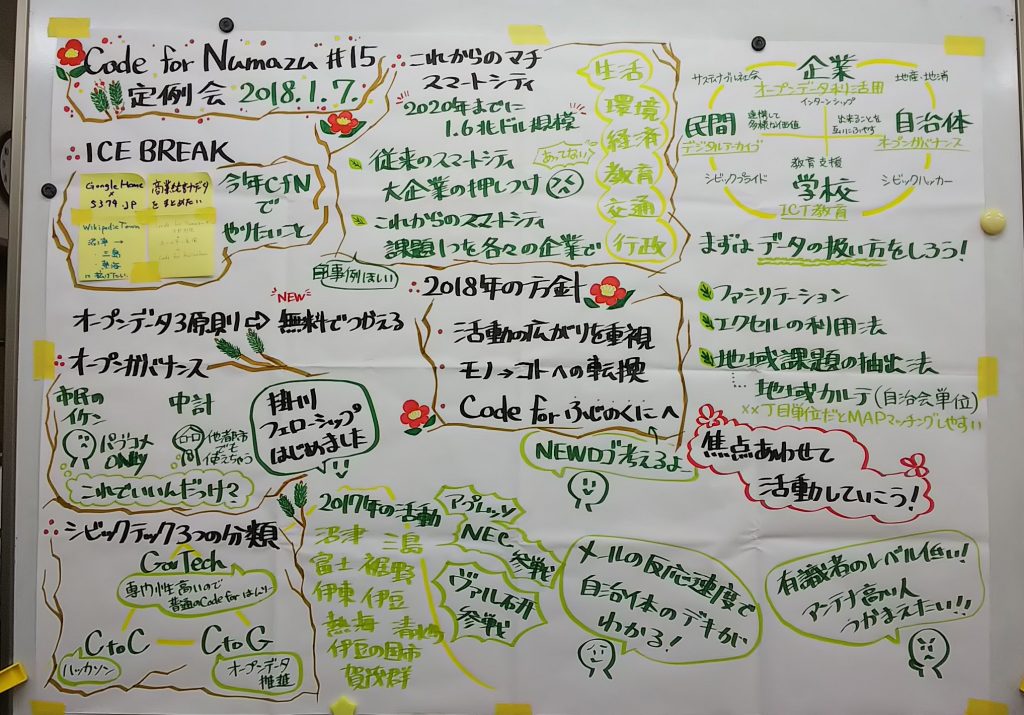 Code for Numazu #15
定例会 2018.1.7.
ICE BREAK
Google Home
×
5374.JP
商業統計データ
をまとめたい
Wikipedia Town
沼津→
・三島
・熱海
に拡げたい
今年CfN
で
やりたいこと
これからのマチ
スマートシティ
2020年までに
1.6兆ドル規模
あってない
従来のスマートシティ
大企業の押しつけ
これからのスマートシティ
課題1つを各々の企業で
生活
環境
経済
教育
交通
行政
サスティナブル社会
企業
地産・地消
オープンデータ利活用
インターンシップ
民間
デジタルアーカイブ
連携して
多様な価値
出来ることを
自治体
オープンガバナンス
教育支援
シビックプライド
学校
シビックハッカー
ICT教育
まずはデータの扱い方をしろう!
ファシリテーション
エクセルの利用法
地域課題の抽出法
地域カルテ(自治会単位)
××丁目単位だとMAPマッチングしやすい
焦点あわせて
活動していこう!
オープンデータ3原則⇨
NEW
無料でつかえる
事例ほしい
2018年の方針
・活動の広がりを重視
・モノ→コトへの転換
・Code for ふじのくにへ
NEWロゴ考えるよ
オープンガバナンス
市民の
イケン
パブコメ
ONLY
中計
他都市
でも
使えちゃう
これでいいんだっけ?
掛川
フェローシップ
はじめました
シビックテック3つの分類
GovTech
専門性高いので
普通のCode forはムリ
CtoC
ハッカソン
CtoG
オープンデータ
推進
2017年の活動
沼津 三島
富士 裾野
伊東 伊豆
熱海
伊豆の国市
賀茂郡
アプレッソ
NEC
参戦
ヴァル研
参戦
メールの反応速度で
自治体のデキが
わかる!
有識者のレベル低い!
アンテナ高い人
つかまえたい!!